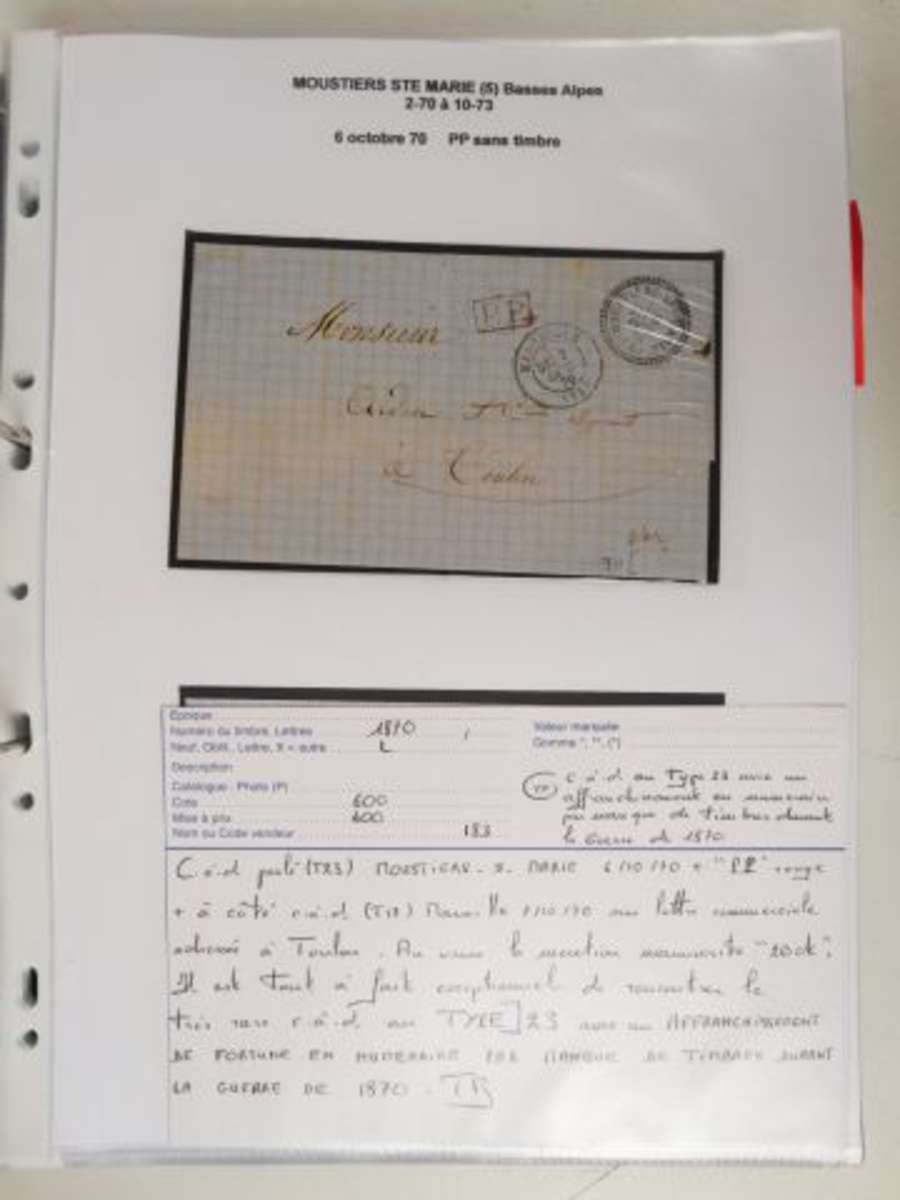 MOUSTIERS STE MARIE (5) Basses Alpes
2-70 à 10-73
6 octobre 70 PP sans timbre
P.P.
Monsieur
à Toulon
Epoque
Numéro du timbre, Lettres 1870
Neuf, Oblit., Lettre, X = autre L
Description
Catalogue : Photo (P)
Cote 600
Mise à prix 400
Nom ou Code vendeur 183
Valeur marquée
Gomme *, **, (*)
c à d au Type 23 avec un
affranchissement en numéraire
par manque de timbres durant
la Guerre de 1870
C.à.d perlé (T23) MOUSTIERS-S-MARIE 6/10/70 + "PP" rouge
+ à côté c.à.d. (T17) Marseille 7/10/70 sur lettre commerciale
adressée à Toulon. Au verso la mention manuscrite "20ck".
Il est tout à fait exceptionnel de rencontrer le
très rare c.à.d. au TYPE 23 avec un AFFRANCHISSEMENT
DE FORTUNE EN NUMERAIRE PAR MANQUE DE TIMBRES DURANT
LA GUERRE DE 1870 - TB